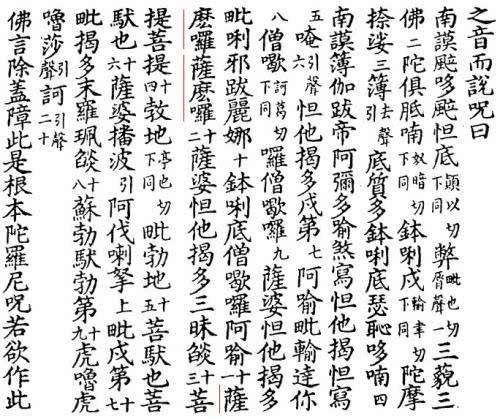 之音而說呪曰
南謨颰哆颰怛底頞以切下同弊毗也切脣聲一三藐三
佛二陀俱胝喃奴暗切下同鉢唎戍輸聿切下同陀摩
捺娑三簿去聲引底質多鉢唎底瑟恥哆喃四
南謨簿伽跋帝阿彌多喻煞寫怛他揭怛寫
五唵引聲六怛他揭多戍第七阿喻毗輸達你
八僧歌訶葛切下同囉僧歌囉九薩婆怛他揭多
毗唎邪跋麗娜十鉢唎底僧歌囉阿喻十一薩
麼囉薩麼囉十二薩婆怛他揭多三昧焰十三菩
提菩提十四勃地亭也切下同毗勃地十五菩馱也菩
馱也十六薩婆播波引阿伐喇拏上毗戍第十七
毗揭多末羅珮焰十八蘇勃馱勃第十九虎嚕虎
嚕莎引聲訶引聲二十
佛言除蓋障此是根本陀羅尼呪若欲作此